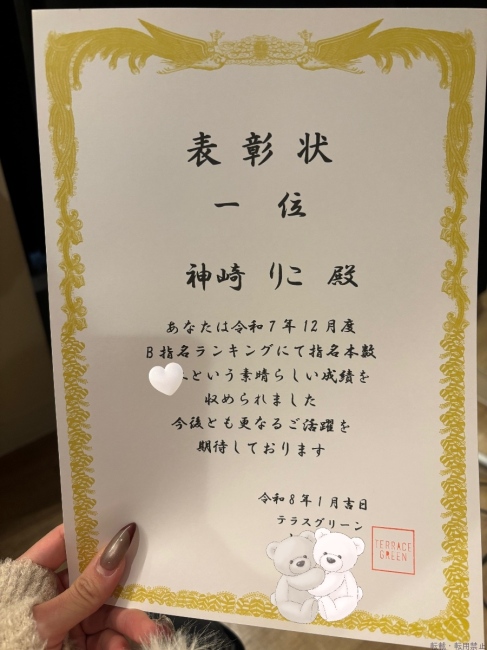 表彰状
一位
神崎 りこ 殿
あなたは令和7年12月度
B指名ランキングにて指名本数
という素晴らしい成績を
収められました
今後とも更なるご活躍を
期待しております
令和8年1月吉日
テラスグリーン
TERRACE
GREEN
転載・転用禁止